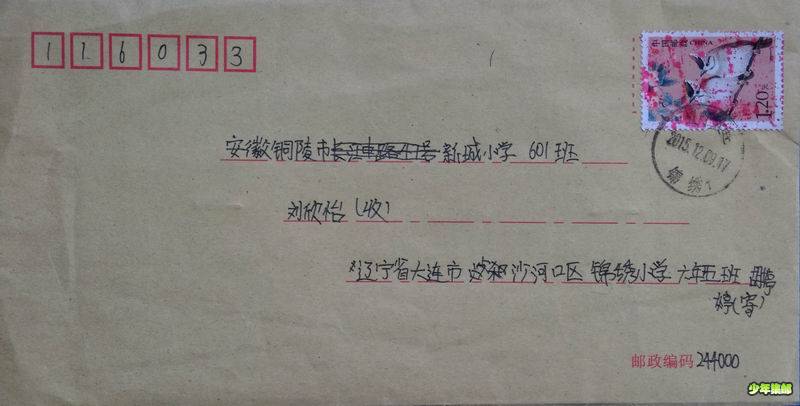 116033
中国邮政 CHINA
1.20元
2015.12.09.17
锦绣1
安徽铜陵市长江中路 号新城小学 601班
刘欣怡(收)
辽宁省大连市 沙河口区 锦绣小学 六年五班
婷(寄)
邮政编码 244000
少年集邮